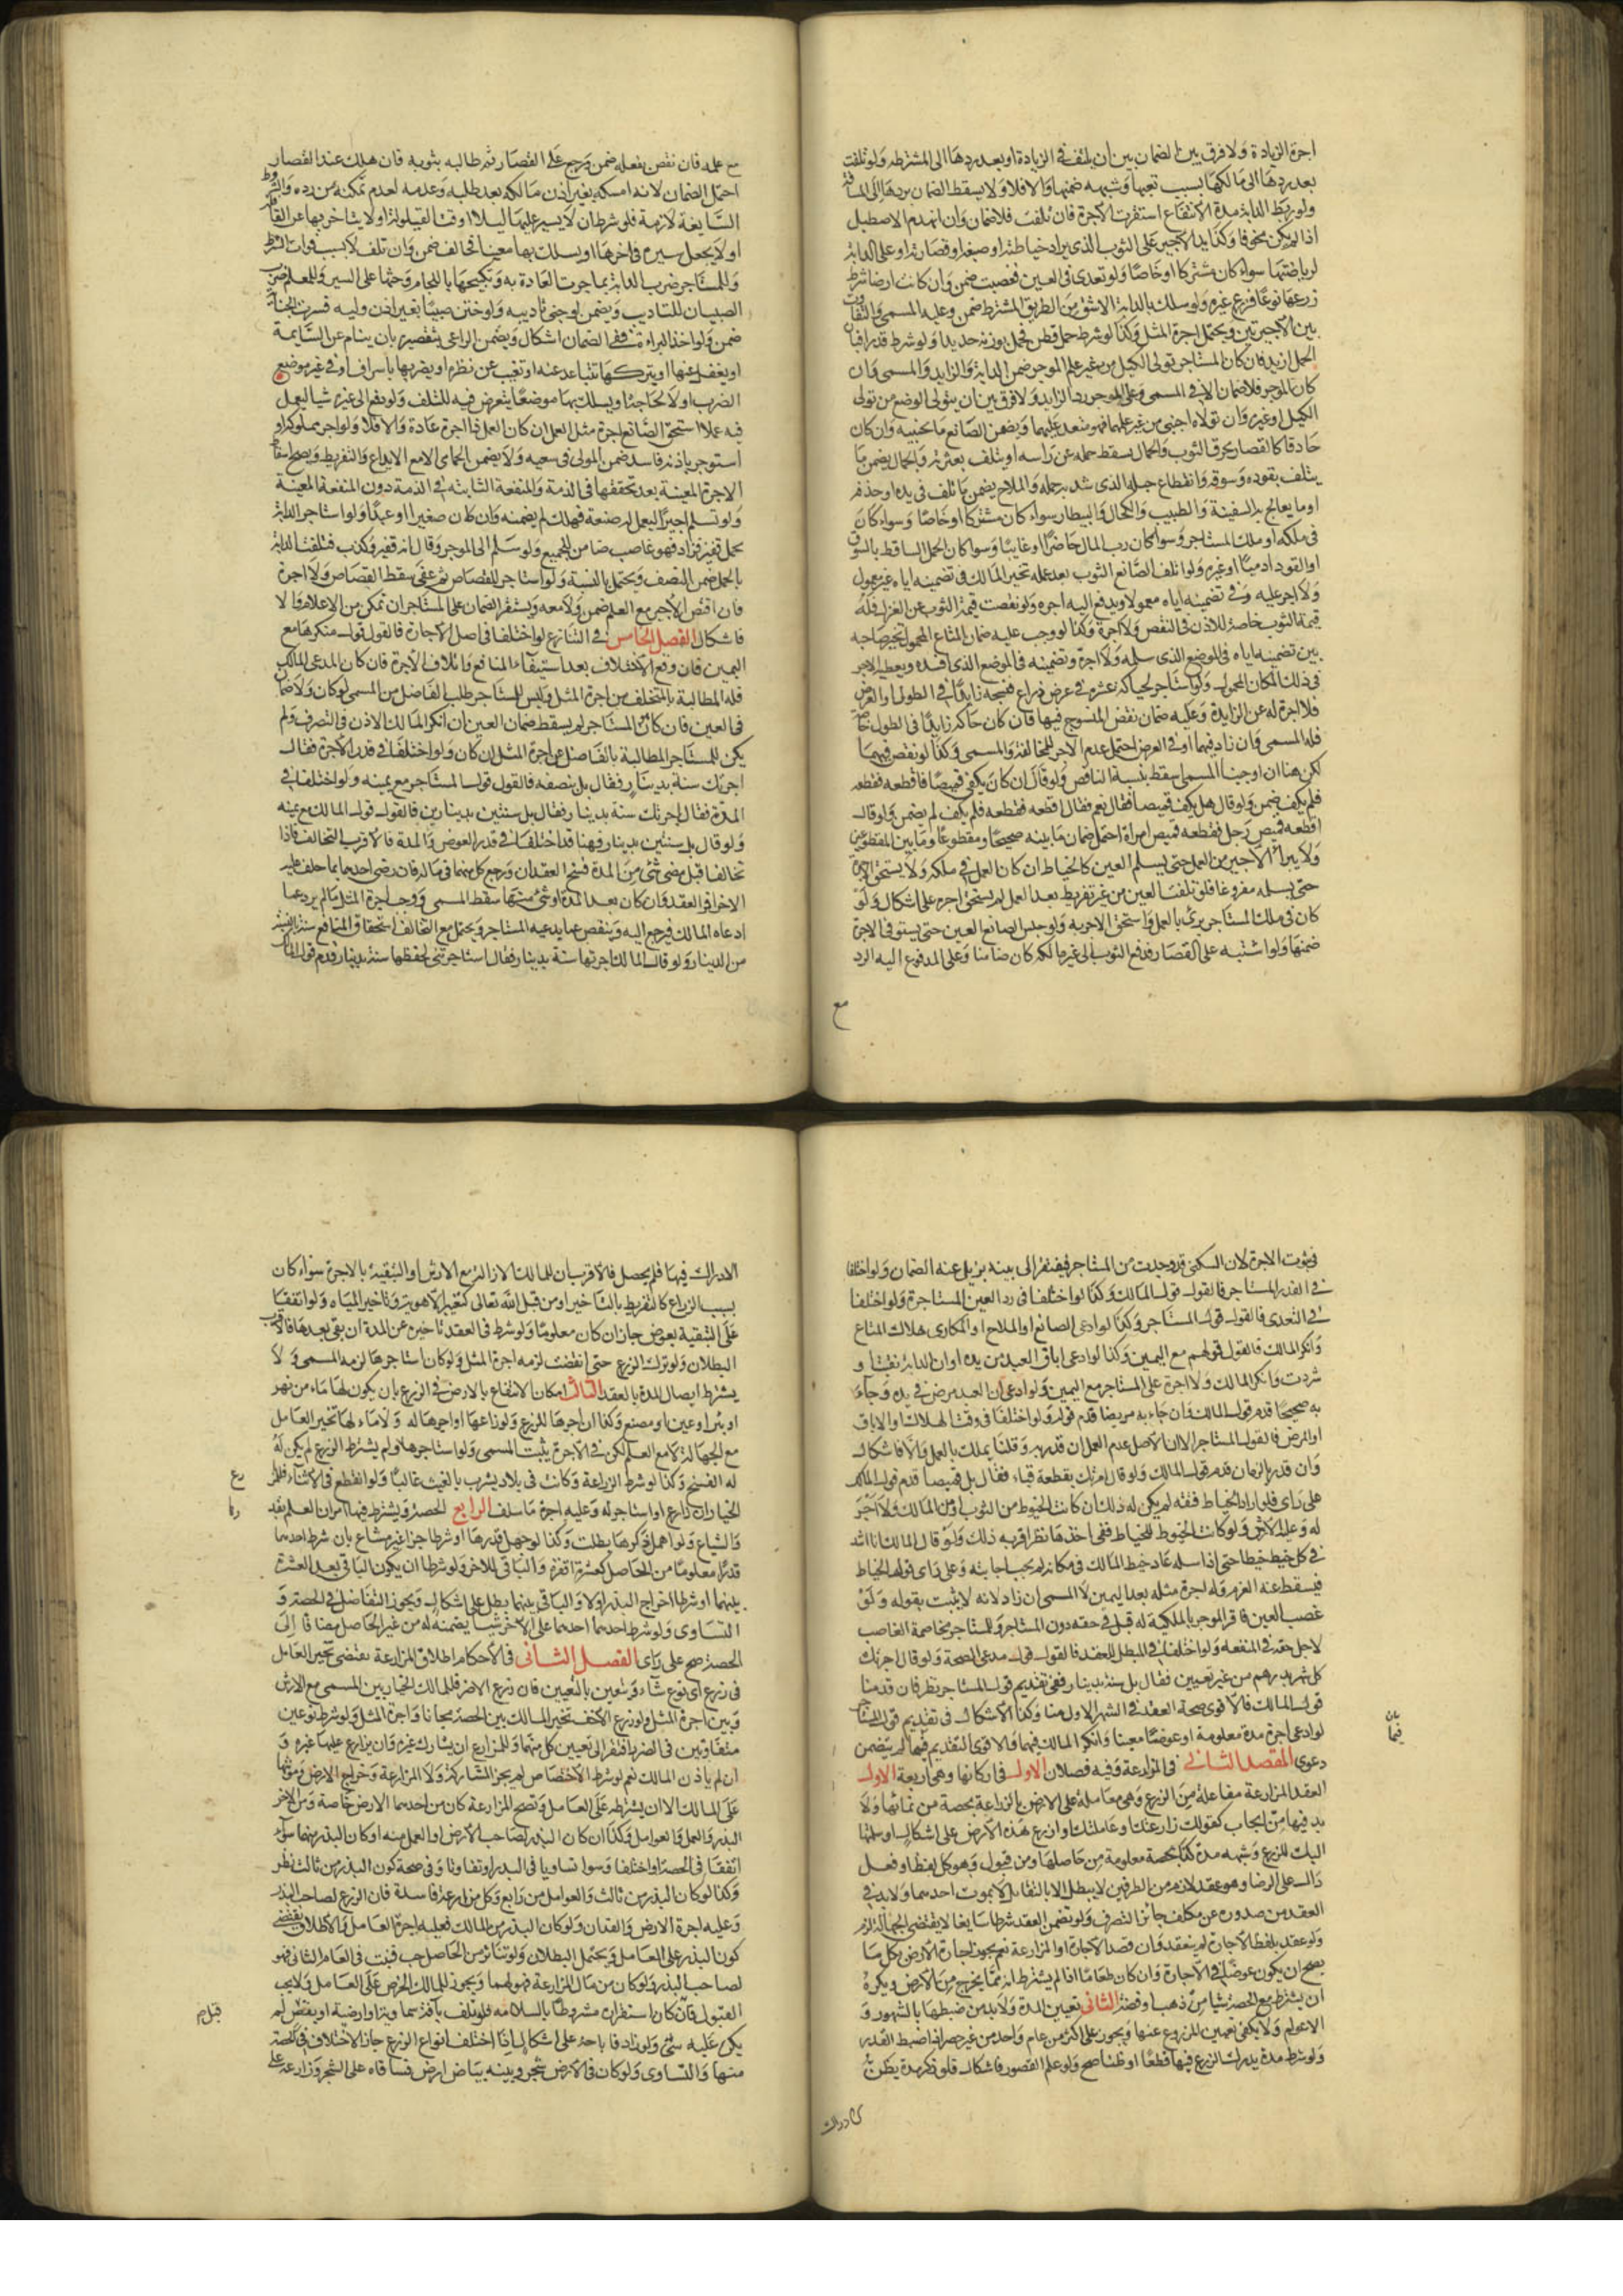 اجرة الزيادة ولا فرق بين الضمان بين ان يتلف في الزيادة او بعد ردها الى المشترطه ولو تلفت
بعد ردها الى مالكها بسبب تعبها وشبهه ضمنها والا فلا ولا يسقط الضمان بردها الى المسافة
ولو ربط الدابة مدة الانتفاع استقرت الاجرة فان تلفت فلا ضمان وان انهدم الاصطبل
اذا لم يكن مخوفا وكذا يد الاجير على الثوب الذي يراد خياطته او صبغه او قصارته او على الدابة
لرياضتها سواء كان مشتركا او خاصا ولو تعدى في العين فغصبت ضمن وان كانت ارضا شرط
زرعها نوعا فزرع غيره ولو سلك بالدابة الاشق من الطريق المشترط ضمن وعليه المسمى والتفاوت
بين الاجرتين ويحتمل اجرة المثل وكذا لو شرط حمل قطن فحمل بوزنه حديدا ولو شرط قدرا فبان
الحمل ازيد فان كان المستاجر تولى الكيل من غير علم الموجر ضمن الدابة والزايد والمسمى وان
كان الموجر فلا ضمان الا في المسمى وعلى الموجر رد الزايد ولا فرق بين ان يتولى الوضع من تولى
الكيل او غيره وان تولاه اجنبي من غير علمهما فهو متعد عليهما ويضمن الصانع ما يجنيه وان كان
حاذقا كالقصار يحرق الثوب والحمال يسقط حمله عن راسه او يتلف بعثرته والجمال يضمن ما
يتلف بقوده وسوقه وانقطاع حبله الذي شد به حمله والملاح يضمن ما تلف في يده او جذفه
او ما يعالج به السفينة والطبيب والكحال والبيطار سواء كان مشتركا او خاصا وسواء كان
في ملكه او ملك المستاجر وسواء كان رب المال حاضرا او غايبا وسواء كان الحمل الساقط بالسوق
او القود ادميا او غيره ولو اتلف الصانع الثوب بعد عمله تخير المالك في تضمينه اياه غير معمول
ولا اجر عليه وفي تضمينه اياه معمولا ويدفع اليه اجره ولو نقصت قيمة الثوب عن الغزل فله
قيمة الثوب خاصة للاذن في النقص ولا اجرة وكذا لو وجب عليه ضمان المتاع المحمول تخير صاحبه
بين تضمينه اياه في الموضع الذي سلمه ولا اجرة وتضمينه في الموضع الذي افسده ويعطيه الاجر
في ذلك المكان المحمول ولو استاجر لحياكة عشرة في عرض ذراع فنسجه زايدا في الطول او العرض
فلا اجرة له عن الزايدة وعليه ضمان نقص المنسوج فيها فان كان حاكه زايدا في الطول خاصة
فله المسمى وان زاد فيهما او في العرض احتمل عدم الاجر للمخالفة والمسمى وكذا لو نقص فيهما
لكن هنا ان اوجبنا المسمى اسقط بنسبة الناقص ولو قال ان كان يكفي قميصا فاقطعه فقطعه
فلم يكف ضمن ولو قال هل يكفي قميصا فقال نعم فقال اقطعه فقطعه فلم يكف لم يضمن ولو قال
اقطعه قميص رجل فقطعه قميص امراة احتمل ضمان ما بينه صحيحا ومقطوعا وما بين المقطوعين
ولا يبرا الاجير من العمل حتى يسلم العين كالخياط ان كان العمل في ملكه ولا يستحق الاجرة
حتى يسلمه مفروغا فلو تلفت العين من غير تفريط بعد العمل لم يستحق اجره على اشكال ولو
كان في ملك المستاجر برئ بالعمل واستحق الاجر به ولو حبس الصانع العين حتى يستوفي الاجرة
ضمنها ولو اشتبه على القصار فدفع الثوب الى غير مالكه كان ضامنا وعلى المدفوع اليه الرد
مع
مع علمه فان نقص بفعله ضمن ورجع على القصار ثم طالبه بثوبه فان هلك عند القصار
احتمل الضمان لانه امسكه بغير اذن مالكه بعد طلبه وعدمه لعدم تمكنه من رده والشروط
السايغة لازمة فلو شرط ان لا يسير عليها ليلا او وقت القيلولة او لا يتاخر بها عن القافلة
او لا يجعل سيره في اخرها او يسلك بها معينا فخالف ضمن وان تلف لا بسبب فوات الشرط
وللمستاجر ضرب الدابة بما جرت العادة به وتكبيحها باللجام وحثها على السير وللمعلم ضرب
الصبيان للتاديب ويضمن لو جنى تاديبه ولو ختن صبيا بغير اذن وليه فسرت الجناية
ضمن ولو اخذ البراءة ففي الضمان اشكال ويضمن الراعي بتقصيره بان ينام عن السايمة
او يغفل عنها او يتركها تتباعد عنه او تغيب عن نظره او يضربها باسراف او في غير موضع
الضرب او لا لحاجة او يسلك بها موضعا يتعرض فيه للتلف ولو دفع الى غيره شيا ليعمل
فيه عملا استحق الصانع اجرة مثل العمل ان كان العمل ذا اجرة عادة والا فلا ولو اجر مملوكه او
استوجر باذنه فافسد ضمن المولى في سعيه ولا يضمن الحمامي الا مع الايداع والتفريط ويصح اسقاط
الاجرة المعينة بعد تحققها في الذمة والمنفعة الثابتة في الذمة دون المنفعة المعينة
ولو تسلم اجيرا ليعمل له صنعة فهلك لم يضمنه وان كان صغيرا او عبدا ولو استاجر الدابة
لحمل قفيز فزاد فهو غاصب ضامن للجميع ولو سلم الى الموجر وقال انه قفيز وكذب فتلفت الدابة
بالحمل ضمن النصف ويحتمل بالنسبة ولو استاجر للقصاص ثم عفى سقط القصاص ولا اجرة
فان اقتص الاجير مع العلم ضمن ولا معه ويستقر الضمان على المستاجر ان تمكن من الاعلام والا
فاشكال الفصل الخامس في التنازع لو اختلفا في اصل الاجارة فالقول قول منكرها مع
اليمين فان وقع الاختلاف بعد استيفاء المنافع واتلاف الاجرة فان كان المدعي المالك
فله المطالبة بالمتخلف من اجرة المثل وليس للمستاجر طلب الفاضل من المسمى لو كان ولا ضمان
في العين فان كان المستاجر لم يسقط ضمان العين ان انكر المالك الاذن في التصرف ولم
يكن للمستاجر المطالبة بالفاضل عن اجرة المثل ان كان ولو اختلفا في قدر الاجرة فقال
اجرتك سنة بدينار فقال بل بنصفه فالقول قول المستاجر مع يمينه ولو اختلفا في
المدة فقال اجرتك سنة بدينار فقال بل سنتين بدينارين فالقول قول المالك مع يمينه
ولو قال بل سنتين بدينار فهنا قد اختلفا في قدر العوض والمدة فالاقرب التحالف فاذا
تحالفا قبل مضي شئ من المدة فسخ العقد ان ورجع كل منهما في ماله فان رضي احدهما بما حلف عليه
الاخر اقر العقد وان كان بعد المدة او شئ منها سقط المسمى ووجب اجرة المثل ما لم يرد عما
ادعاه المالك فيرجع اليه وينقص عما يدعيه المستاجر ويحتمل مع التحالف استحقاق المنافع سنة بالنسبة
من الدينار ولو قال المالك اجرتها سنة بدينار فقال استاجرتني لحفظها سنة بدينار قدم قول المالك
في ثبوت الاجرة لان السكنى قد وجدت من المستاجر فيفتقر الى بينة تزيل عنه الضمان ولو اختلفا
في القدر المستاجر فالقول قول المالك وكذا لو اختلفا في رد العين المستاجرة ولو اختلفا
في التعدي فالقول قول المستاجر وكذا لو ادعى الصانع او الملاح او المكاري هلاك المتاع
وانكر المالك فالقول قولهم مع اليمين وكذا لو ادعى اباق العبد من يده او ان الدابة نفقت او
شردت وانكر المالك ولا اجرة على المستاجر مع اليمين ولو ادعى ان العبد مرض في يده وجاء
به صحيحا قدم قول المالك وان جاء به مريضا قدم قوله ولو اختلفا في وقت الهلاك او الاباق
او المرض فالقول قول المستاجر لان الاصل عدم العمل ان قدر به وقلنا يملك بالعمل والا فاشكال
وان قدر بالزمان قدم قول المالك ولو قال امرتك بقطعه قباء فقال بل قميصا قدم قول المالك
على راى فلو اراد الخياط فتقه لم يكن له ذلك ان كانت الخيوط من الثوب او من المالك ولا اجر
له وعليه الارش ولو كانت الخيوط للخياط ففي اخذها نظر اقربه ذلك ولو قال المالك انا اشد
في كل خيط خيطا حتى اذا سله عاد خيط المالك في مكانه لم يجب اجابته وعلى راى قول الخياط
فيسقط عنه الغرم وله اجرة مثله بعد اليمين لا المسمى ان زاد لانه لا يثبت بقوله ولو
غصب العين فاقر الموجر بالملكية له قبل في حقه دون المستاجر وللمستاجر مخاصمة الغاصب
لاجل حقه في المنفعة ولو اختلفا في المبطل للعقد فالقول قول مدعي الصحة ولو قال اجرتك
كل شهر بدرهم من غير تعيين فقال بل سنة بدينار ففي تقديم قول المستاجر نظر فان قدمنا
قول المالك فالاقوى صحة العقد في الشهر الاول هنا وكذا الاشكال في تقديم قول المستاجر
لو ادعى اجرة مدة معلومة او عوضا معينا وانكر المالك فيهما والاقوى التقديم فيما لم يتضمن
دعوى المقصد الثاني في المزارعة وفيه فصلان الاول في اركانها وهي اربعة الاول
العقد المزارعة مفاعلة من الزرع وهي معاملة على الارض بالزراعة بحصة من نمائها ولا
بد فيها من ايجاب كقولك زارعتك وعاملتك وازرع هذه الارض على اشكال او سلمتها
اليك للزرع وشبهه مدة كذا بحصة معلومة من حاصلها ومن قبول وهو كل لفظ او فعل
دال على الرضا وهو عقد لازم من الطرفين لا يبطل الا بالتقايل لا بموت احدهما ولا بد في
العقد من صدوره عن مكلف جائز التصرف ولو تضمن العقد شرطا سايغا لا يقتضي الجهالة لزم
ولو عقد بلفظ الاجارة لم ينعقد وان قصد الاجارة او المزارعة نعم يجوز اجارة الارض بكل ما
يصح ان يكون عوضا في الاجارة وان كان طعاما اذا لم يشترط انه مما يخرج من الارض ويكره
ان يشترط مع الحصة شيا من ذهب او فضة الثاني تعيين المدة ولا بد من ضبطها بالشهور و
الاعوام ولا يكفي تعيين المزروع عنها ويجوز على اكثر من عام واحد من غير حصر اذا ضبط القدر
ولو شرط مدة يدرك الزرع فيها قطعا او ظنا صح ولو علم القصور فاشكال فلو ذكر مدة يظن
الادراك
الادراك فيها فلم يحصل فالاقرب ان للمالك الازالة مع الارش او التبقية بالاجرة سواء كان
بسبب الزارع كالتفريط بالتاخير او من قبل الله تعالى كتغير الاهوية وتاخير المياه ولو اتفقا
على التبقية بعوض جاز ان كان معلوما ولو شرط في العقد تاخيره عن المدة ان بقي بعدها فالاقرب
البطلان ولو ترك الزرع حتى انقضت لزمه اجرة المثل ولو كان استاجرها لزمه المسمى ولا
يشترط ايصال المدة بالعقد الثالث امكان الانتفاع بالارض في الزرع بان يكون لها ماء من نهر
او بئر او عين او مصنع وكذا ان اجرها للزرع ولو زارعها او اجرها له ولا ماء لها تخير العامل
مع الجهالة لا مع العلم لكن في الاجرة يثبت المسمى ولو استاجرها ولم يشترط الزرع لم يكن له
له الفسخ وكذا لو شرط الزراعة وكانت في بلاد يشرب بالغيث غالبا ولو انقطع في الاثناء فللزارع
الخيار ان زارع او استاجر له وعليه اجرة ما سلف الرابع الحصة ويشترط فيها امران العلم بقدرها
والشياع ولو اهمل ذكرها بطلت وكذا لو جهل قدرها او شرطا جزا غير مشاع بان شرط احدهما
قدرا معلوما من الحاصل كعشرة اقفزة والباقي للاخر ولو شرطا ان يكون الباقي بعد العشرة
بينهما او شرطا اخراج البذر اولا والباقي بينهما بطل على اشكال ويجوز التفاضل في الحصة و
التساوي ولو شرط احدهما على الاخر شيا يضمنه له من غير الحاصل مضافا الى
الحصة صح على راى الفصل الثاني في الاحكام اطلاق المزارعة يقتضي تخير العامل
في زرع اى نوع شاء ويتعين بالتعيين فان زرع الاضر فللمالك الخيار بين المسمى مع الارش
وبين اجرة المثل ولو زرع الاخف تخير المالك بين الحصة مجانا واجرة المثل ولو شرط نوعين
متفاوتين في الضرر افتقر الى تعيين كل منهما وللمزارع ان يشارك غيره وان يزارع عليها غيره و
ان لم ياذن المالك نعم لو شرط الاختصاص لم يجز المشاركة ولا المزارعة وخراج الارض ومؤنتها
على المالك الا ان يشترطه على العامل وتصح المزارعة كان من احدهما الارض خاصة ومن الاخر
البذر والعمل والعوامل وكذا ان كان البذر لصاحب الارض او العمل منه او كان البذر منهما سواء
اتفقا في الحصة او اختلفا وسوا تساويا في البذر او تفاوتا وفي صحة كون البذر من ثالث نظر
وكذا لو كان البذر من ثالث والعوامل من رابع وكل مزارعة فاسدة فان الزرع لصاحب البذر
وعليه اجرة الارض والفدان ولو كان البذر من المالك فعليه اجرة العامل والاطلاق يقتضي
كون البذر على العامل ويحتمل البطلان ولو تناثر من الحاصل حب فنبت في العام الثاني فهو
لصاحب البذر ولو كان من مال المزارعة فهو لهما ويجوز للمالك الخرص على العامل ولا يجب
القبول فان كان استقراره مشروطا بالسلامة فلو تلف بافة سماوية او ارضية او نقص لم
يكن عليه شئ ولو زاد فاباحة على اشكال اذا اختلف انواع الزرع جاز الاختلاف في الحصة
منها والتساوي ولو كان في الارض شجر وبينه بياض ارض فساقاه على الشجر وزارعه على